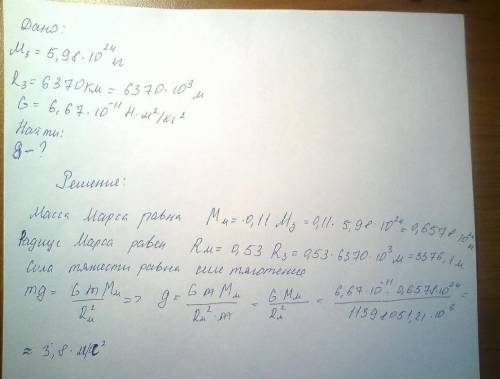 Дано:
M₃ = 5,98·10²⁴ кг
R₃ = 6370 км = 6370·10³ м
G = 6,67·10⁻¹¹ Н·м²/кг²
Найти:
g - ?
Решение:
Масса Марса равна Mм = 0,11 M₃ = 0,11·5,98·10²⁴ = 0,6578·10²⁴ кг
Радиус Марса равен Rм = 0,53 R₃ = 0,53·6370·10³ м = 3376,1 м
Сила тяжести равна силе тяготения
mg = G m Mм / Rм² => g = G m Mм / Rм²·m = G Mм / Rм² = 6,67·10⁻¹¹·0,6578·10²⁴ / 11398051,21·10⁶ =
≈ 3,8 · м/с²